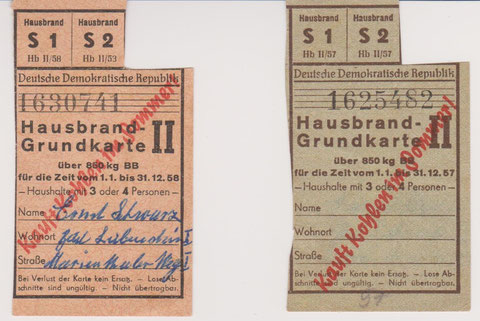 Hausbrand
S 1
Hb II/58
Hausbrand
S 2
Hb II/53
Deutsche Demokratische Republik
1630741
Hausbrand-
Grundkarte II
über 850 kg BB
für die Zeit vom 1.1. bis 31.12.58
— Haushalte mit 3 oder 4 Personen —
Name Ernst Schwarz
Wohnort
Straße
Bei Verlust der Karte kein Ersatz. — Lose Ab-
schnitte sind ungültig. — Nicht übertragbar.
Kauft Kohlen im Sommer!
Hausbrand
S 1
Hb II/57
Hausbrand
S 2
Hb II/57
Deutsche Demokratische Republik
1625482
Hausbrand-
Grundkarte II
über 850 kg BB
für die Zeit vom 1.1. bis 31.12.57
— Haushalte mit 3 oder 4 Personen —
Name
Wohnort
Straße
Bei Verlust der Karte kein Ersatz. — Lose Ab-
schnitte sind ungültig. — Nicht übertragbar.
Kauft Kohlen im Sommer!